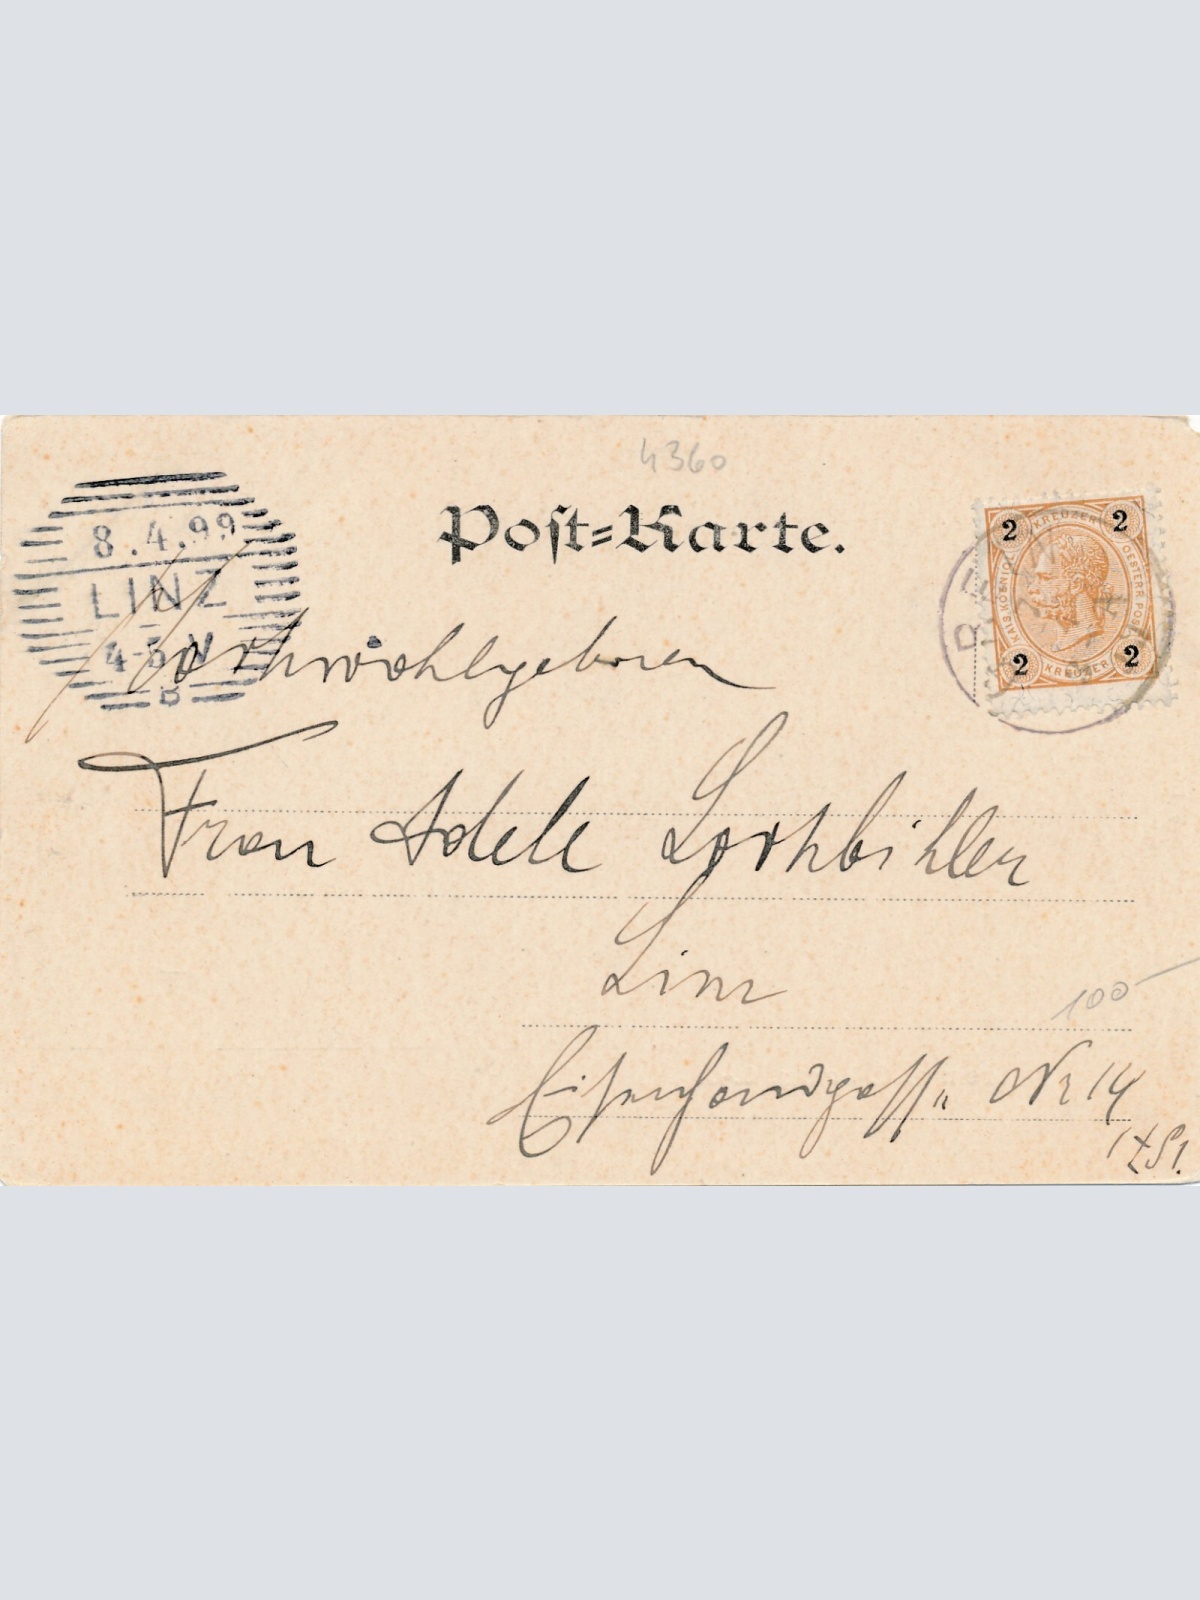 4360
Post=Karte.
8.4.99
LINZ
4-5 V
B
2 KREUZER 2
KAIS. KÖNIGL. OESTERR. POST
2 KREUZER 2
Hochwohlgeboren
Frau Adele
Linz
100
Nr 14